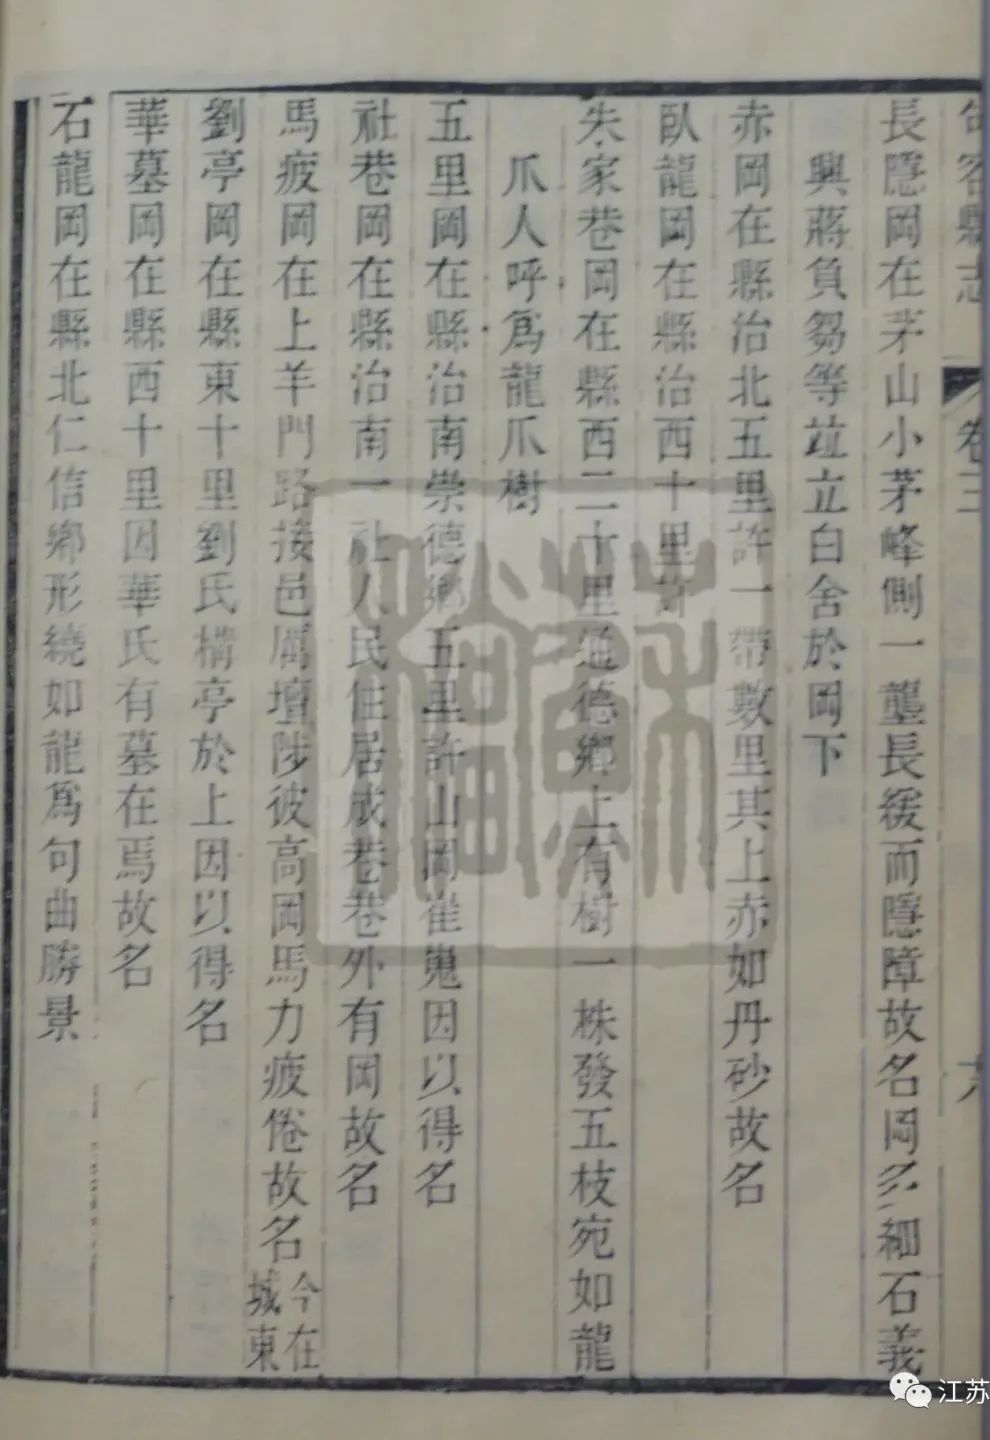 句容縣志 卷三
長隱岡在茅山小茅峰側一壟長緩而隱障故名岡多細石義
興蔣負芻等竝立白舍於岡下
赤岡在縣治北五里許一帶數里其上赤如丹砂故名
臥龍岡在縣治西十里許
朱家巷岡在縣西二十里通德鄉上有樹一株發五枝宛如龍
爪人呼爲龍爪樹
五里岡在縣治南崇德鄉五里許山岡崔嵬因以得名
社巷岡在縣治南一社人民住居成巷巷外有岡故名
馬疲岡在上羊門路接邑厲壇陟彼高岡馬力疲倦故名今在城東
劉亭岡在縣東十里劉氏構亭於上因以得名
華墓岡在縣西十里因華氏有墓在焉故名
石龍岡在縣北仁信鄉形繞如龍爲句曲勝景
江苏